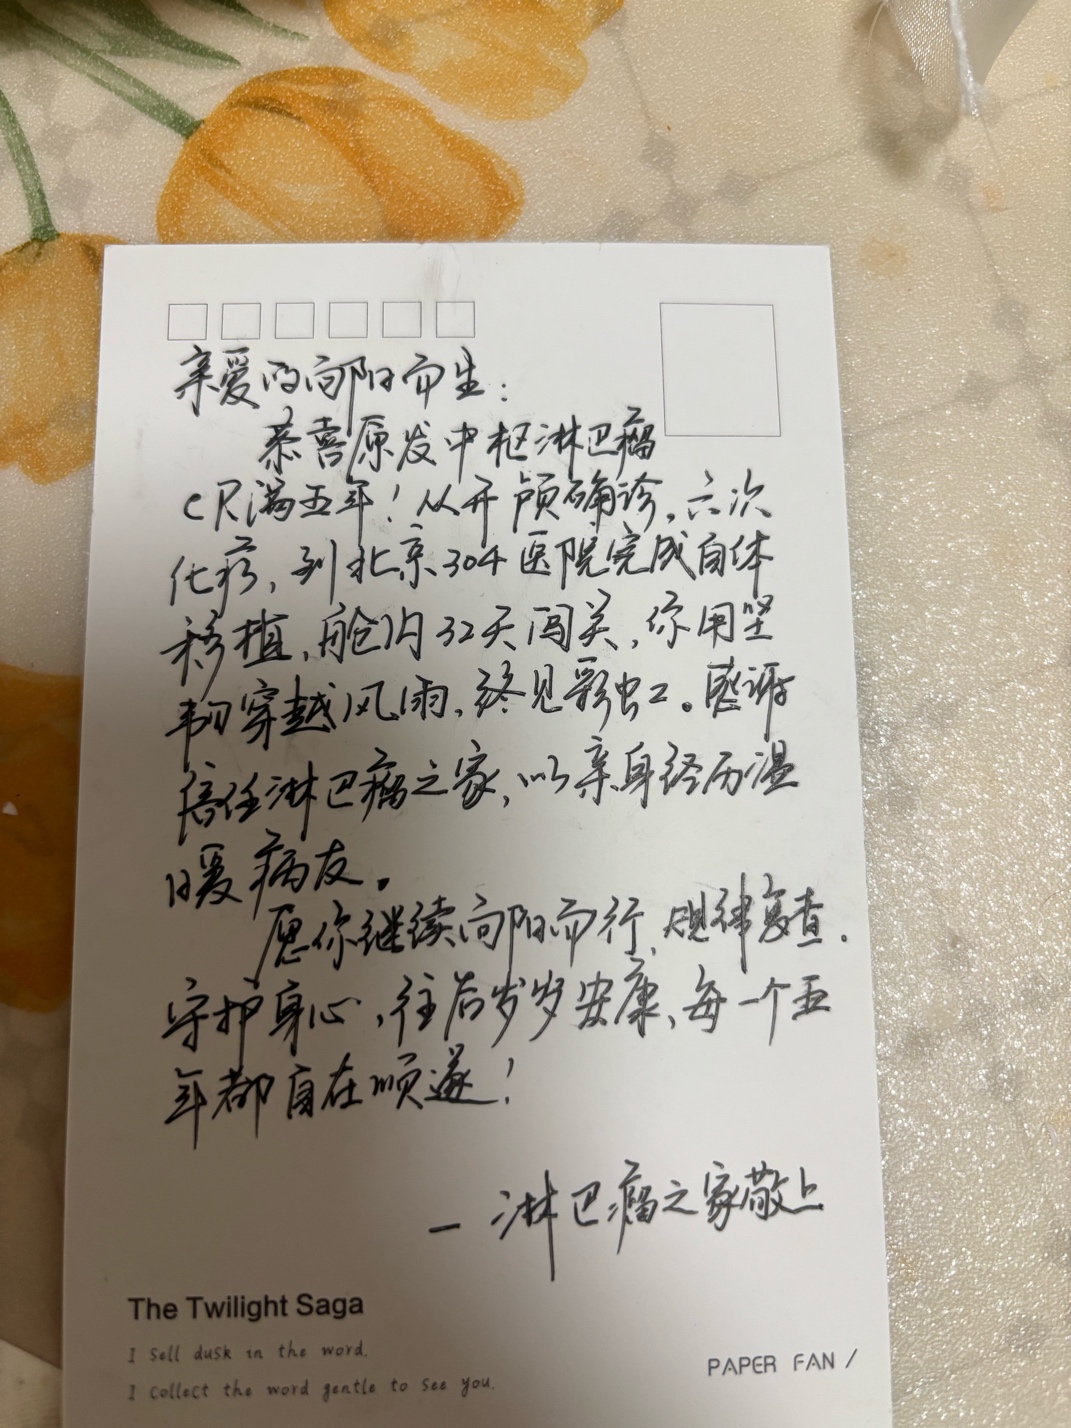 亲爱的向阳而生：
恭喜原发中枢淋巴瘤
CR满五年！从开颅确诊，六次
化疗，到北京304医院完成自体
移植，舱内32天闯关，你用坚
韧穿越风雨，终见彩虹。感谢
信任淋巴瘤之家，以亲身经历温
暖病友。
愿你继续向阳而行，规律复查，
守护身心，往后岁岁安康，每一个五
年都自在顺遂！
— 淋巴瘤之家敬上
The Twilight Saga
I sell dusk in the word.
I collect the word gentle to see you.
PAPER FAN /